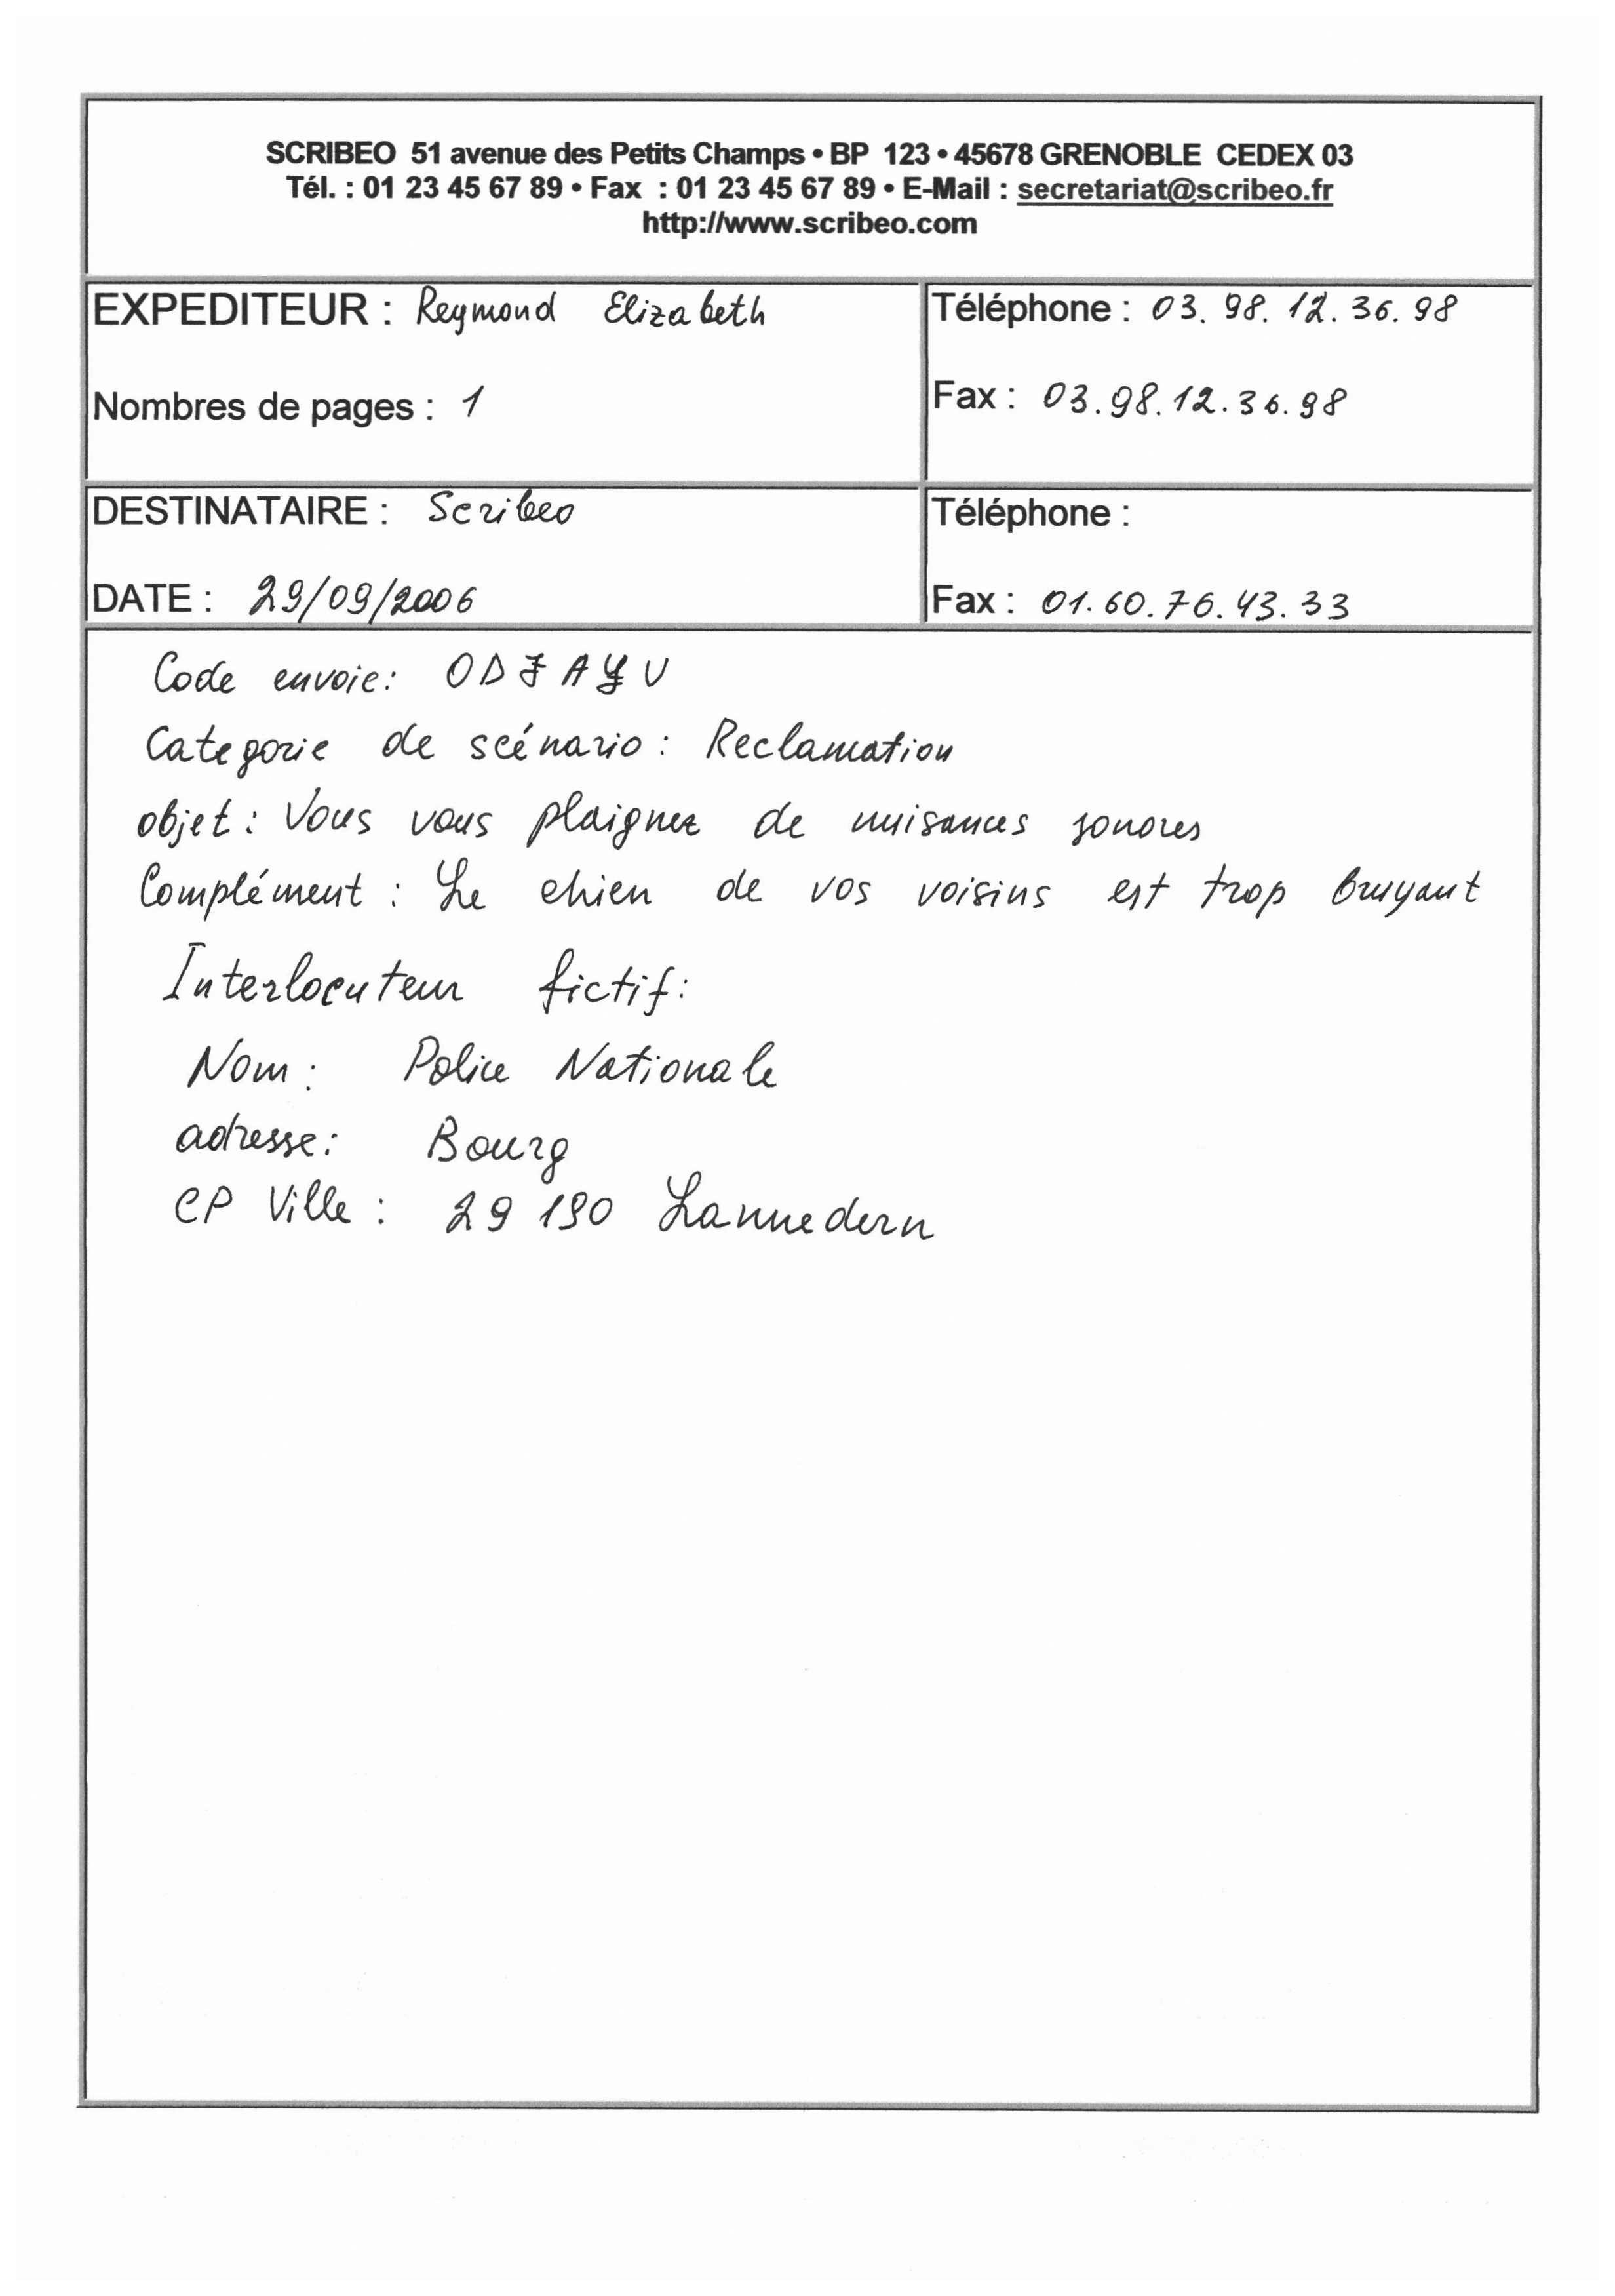 SCRIBEO 51 avenue des Petits Champs • BP 123 • 45678 GRENOBLE CEDEX 03
Tél. : 01 23 45 67 89 • Fax : 01 23 45 67 89 • E-Mail : secretariat@scribeo.fr
http://www.scribeo.com
EXPEDITEUR : Reymond Elizabeth
Téléphone : 03.98.12.36.98
Nombres de pages : 1
Fax : 03.98.12.36.98
DESTINATAIRE : Scribeo
Téléphone :
DATE : 29/09/2006
Fax : 01.60.76.43.33
Code envoie:
Categorie de scénario : Reclamation
objet : Vous vous plaignez de nuisances sonores
Complément : Le chien de vos voisins est trop bruyant
Interlocuteur fictif:
Nom : Police Nationale
adresse: Bourg
CP Ville : 29 190 Lannedern